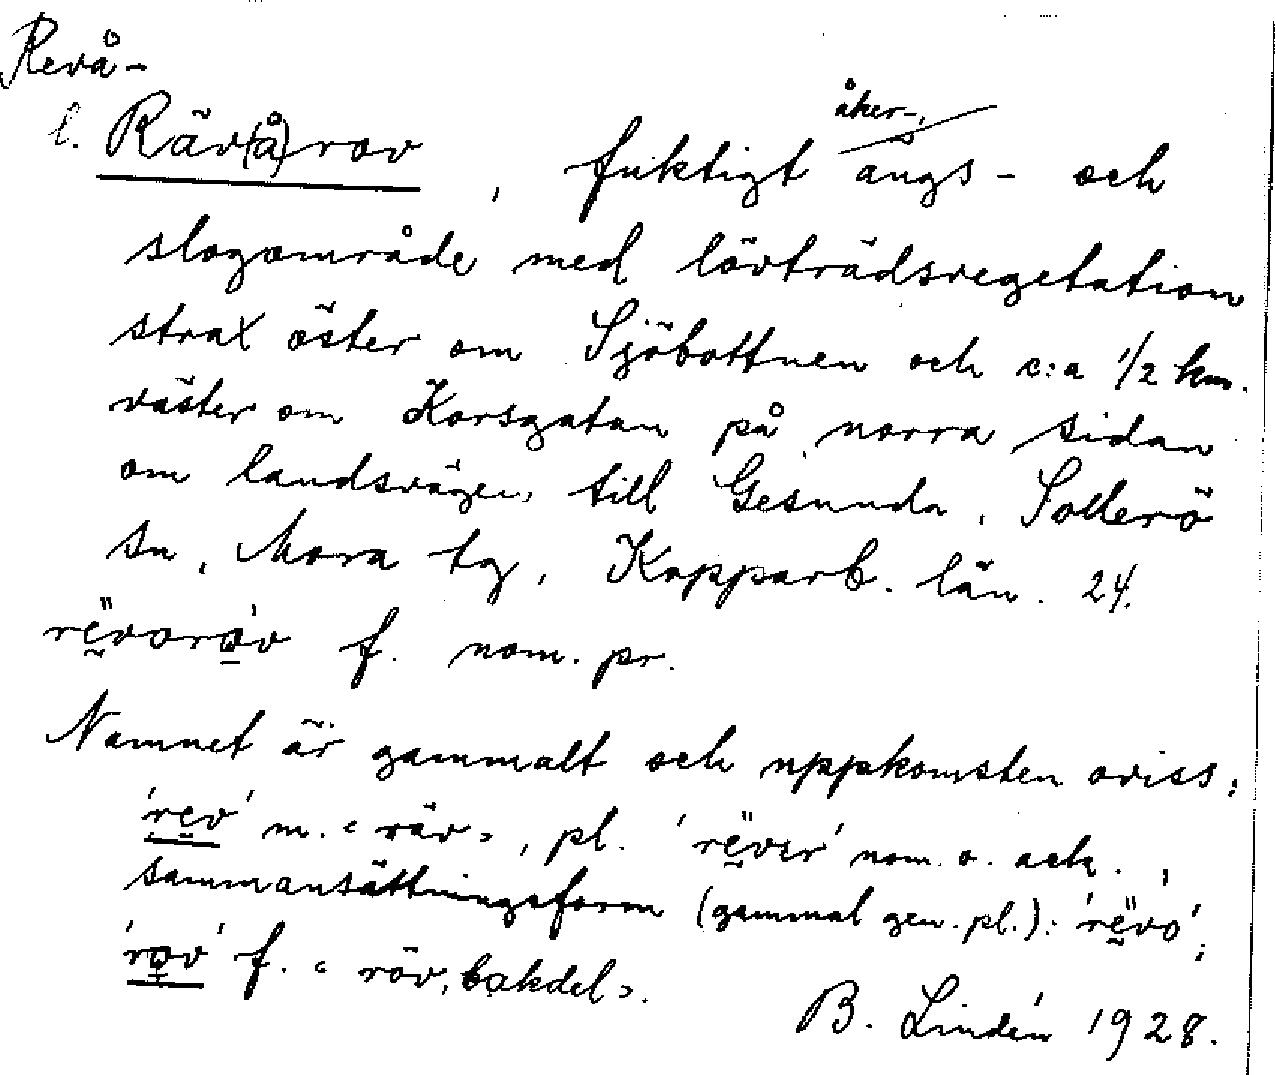 Revå-
l. Räv(å)rov, fuktigt åker-, ängs- och
slogområde med lövträdsvegetation
strax öster om Sjöbottnen och c:a 1/2 km.
väster om Korsgatan på norra sidan
om landsvägen till Gesunda, Sollerö
sn, Mora tg, Kopparb. län. 24.
rëvoróv f. nom. pr.
Namnet är gammalt och uppkomsten oviss;
'rev' m. «räv», pl. 'rëver' nom. o. ack.,
sammansättningsform (gammal gen. pl.): 'rëvo';
'rov' f. «röv, bakdel».
B. Lindén 1928.